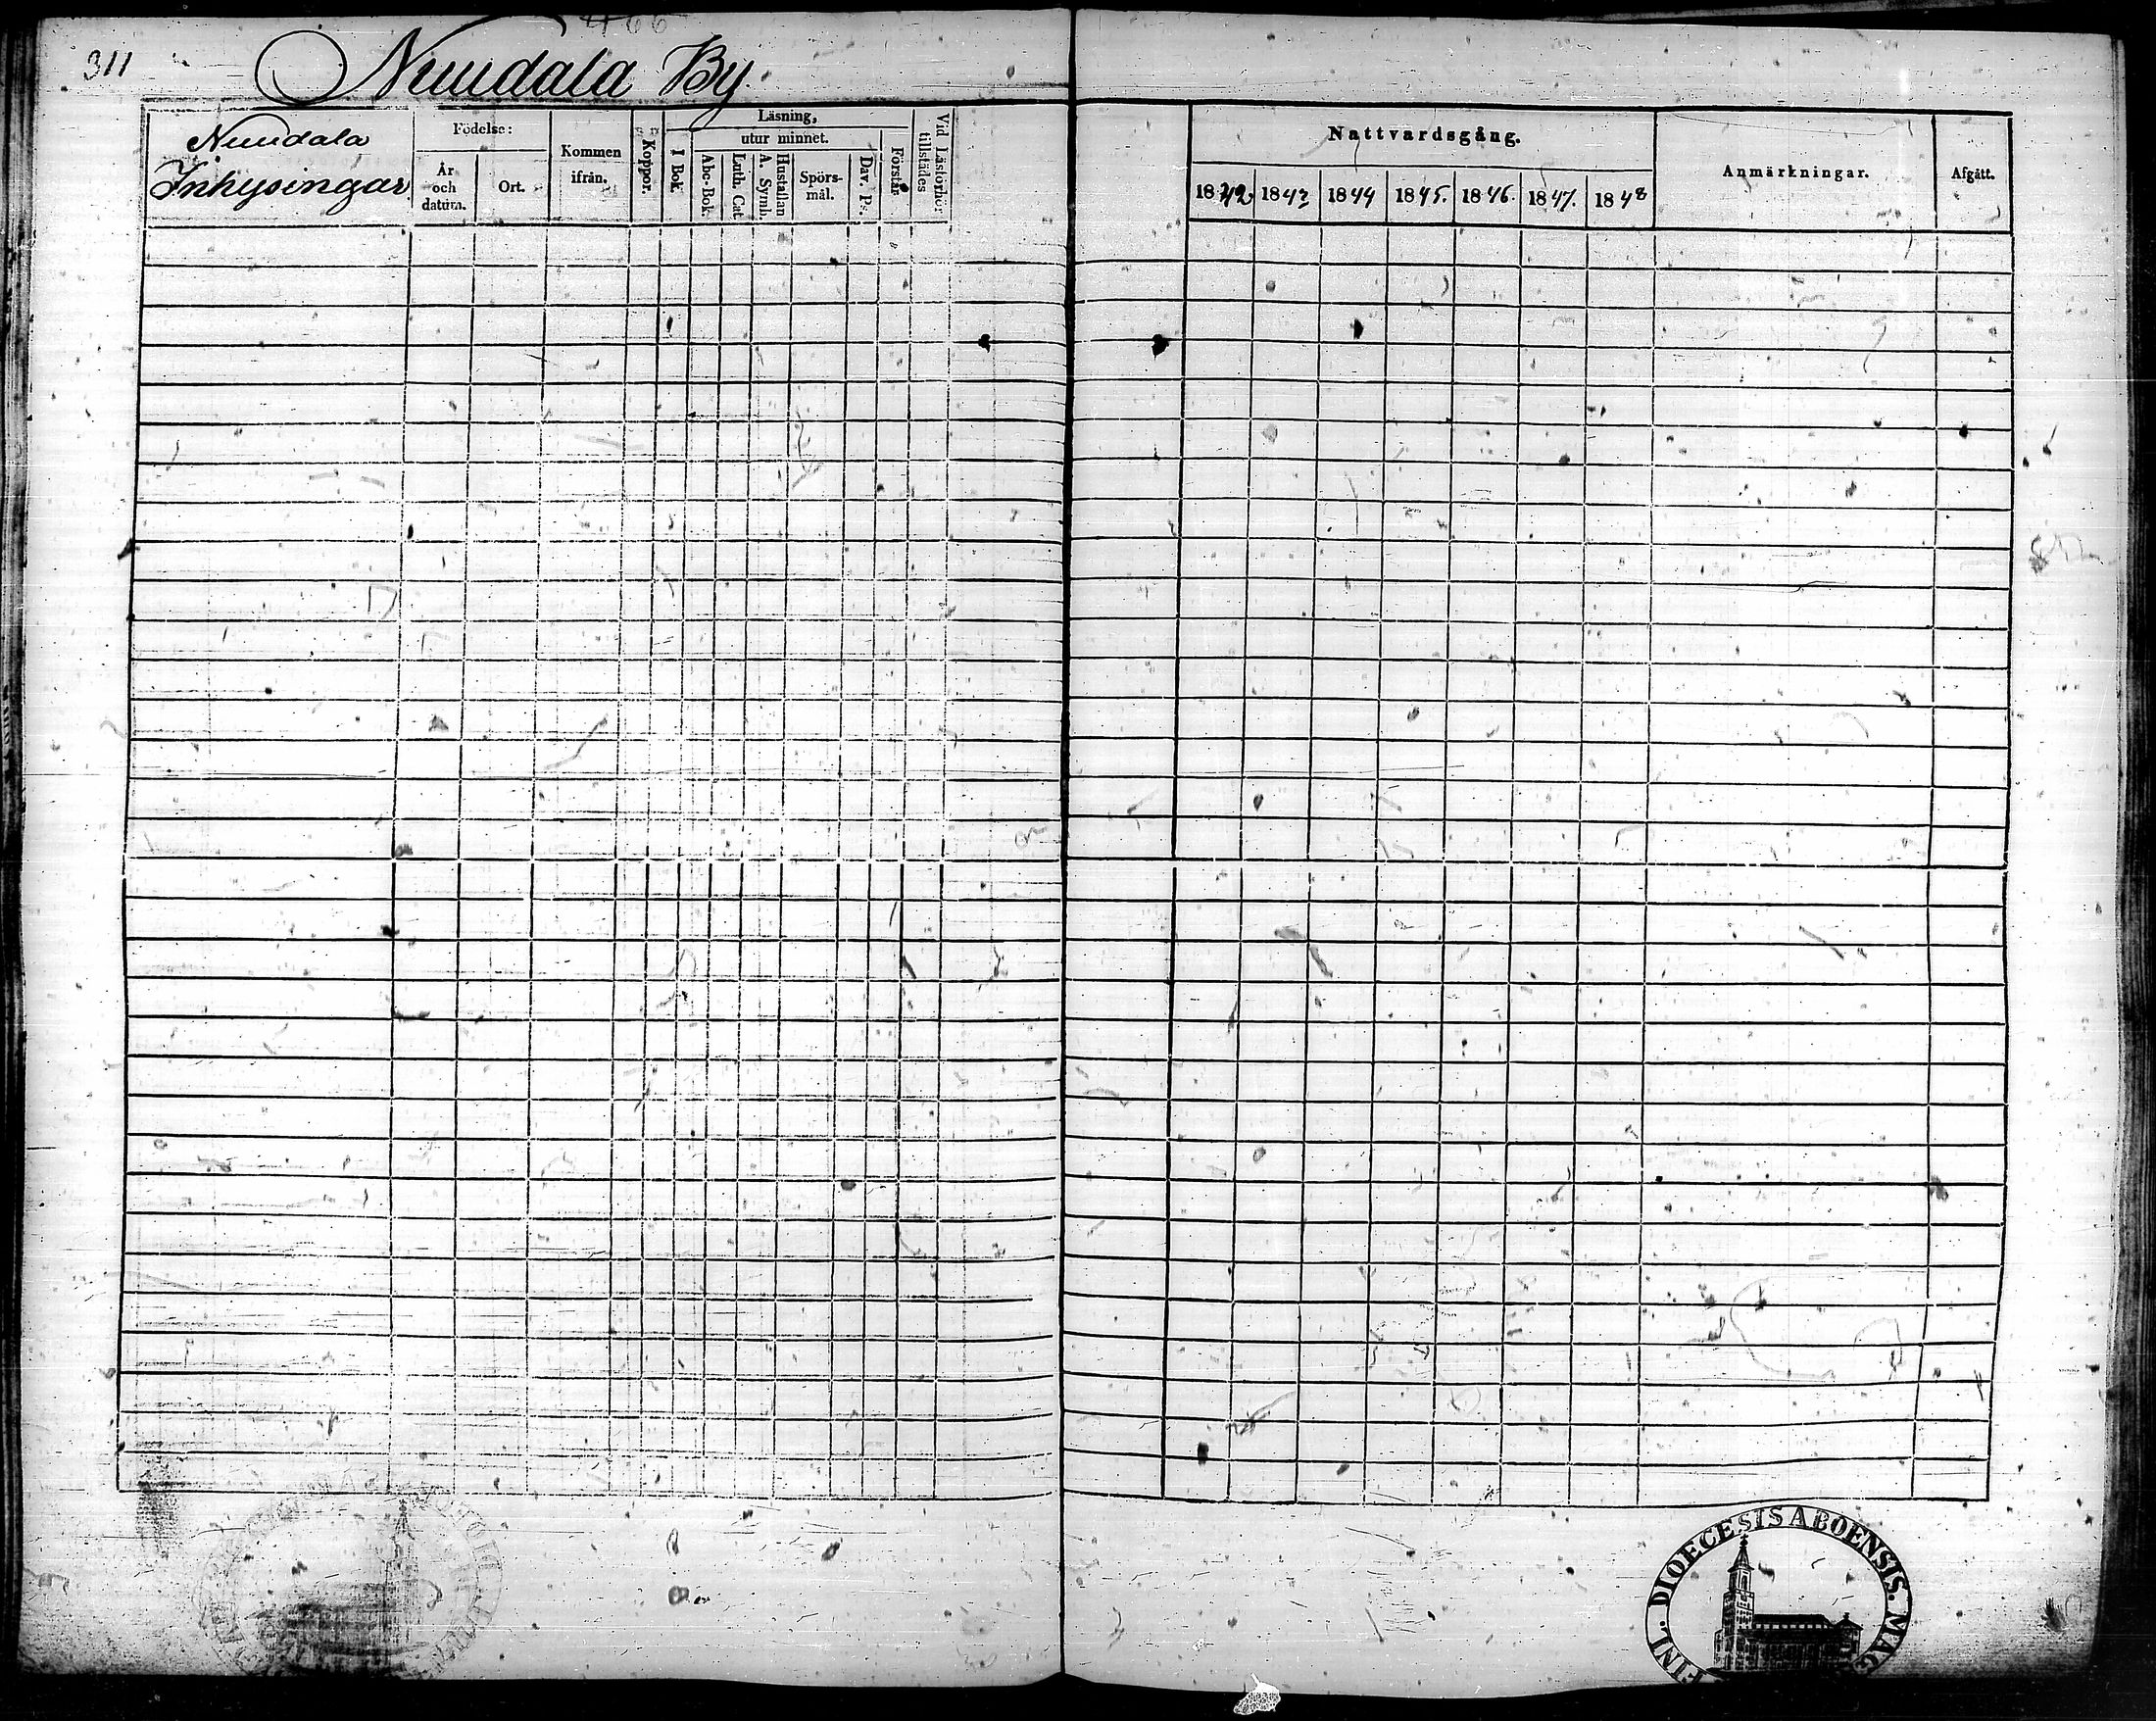 311
Nuudala By.
Nuudala
Inhysingar
Födelse:
År och datum.
Ort.
Kommen ifrån.
Koppor.
Läsning,
utur minnet.
I Bok.
Abc-Bok.
Luth. Cat.
A. Symb.
Hustaflan
Spörs-mål.
Dav. Ps.
Förstår
Vid Läsförhör tillstädes
Nattvardsgång.
1842
1843
1844
1845.
1846.
1847.
1848
Anmärkningar.
Afgått.
FINL. DIOECESIS ABOENSIS. MAG